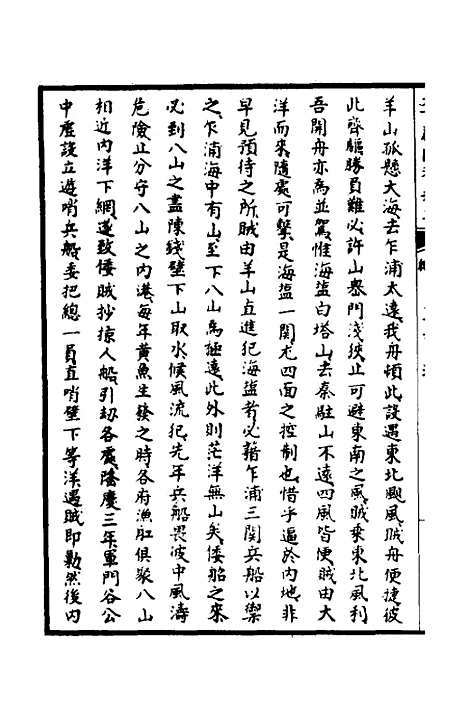 羊山孤懸大海去乍浦太遠我舟頓此設遇東北颶風賊舟便捷彼
此齊驅勝負難必許山㟁門淺狹止可避東南之風賊乗東北風利
吾開舟亦為並駕惟海盐白塔山去秦駐山不遠四風皆便賊由大
洋而來隨處可擊是海盐一関尤四面之控制也惜乎逼於内地非
早見預待之所賊由羊山直進犯海盐者必藉乍浦三関兵船以禦
之乍浦海中有山至下八山為極遠此外則茫洋無山矣倭船之來
必到八山之盡陳錢壁下山取水候風流犯先年兵船畏彼中風濤
危險止分守八山之内港每年黄魚生發之時各府漁船俱聚八山
相近内洋下網遂致倭賊抄掠人船引刼各處隆慶三年軍門谷公
中虛設立遊哨兵船委把總一員直哨壁下等洋遇賊即勦然後内